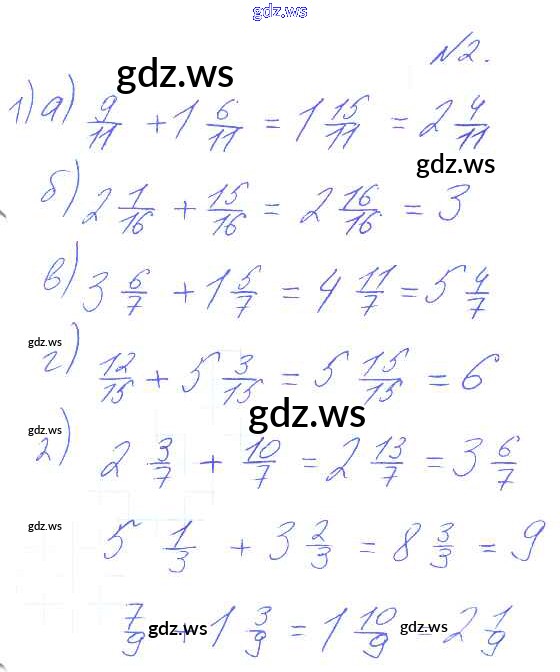 gdz.ws
№2.
gdz.ws
1) а) 9/11 + 1 6/11 = 1 15/11 = 2 4/11
gdz.ws
б) 2 1/16 + 15/16 = 2 16/16 = 3
в) 3 6/7 + 1 5/7 = 4 11/7 = 5 4/7
gdz.ws
г) 12/15 + 5 3/15 = 5 15/15 = 6
gdz.ws
gdz.ws
2) 2 3/7 + 10/7 = 2 13/7 = 3 6/7
gdz.ws
5 1/3 + 3 2/3 = 8 3/3 = 9
7/9 + 1 3/9 = 1 10/9 = 2 1/9
gdz.ws
gdz.ws